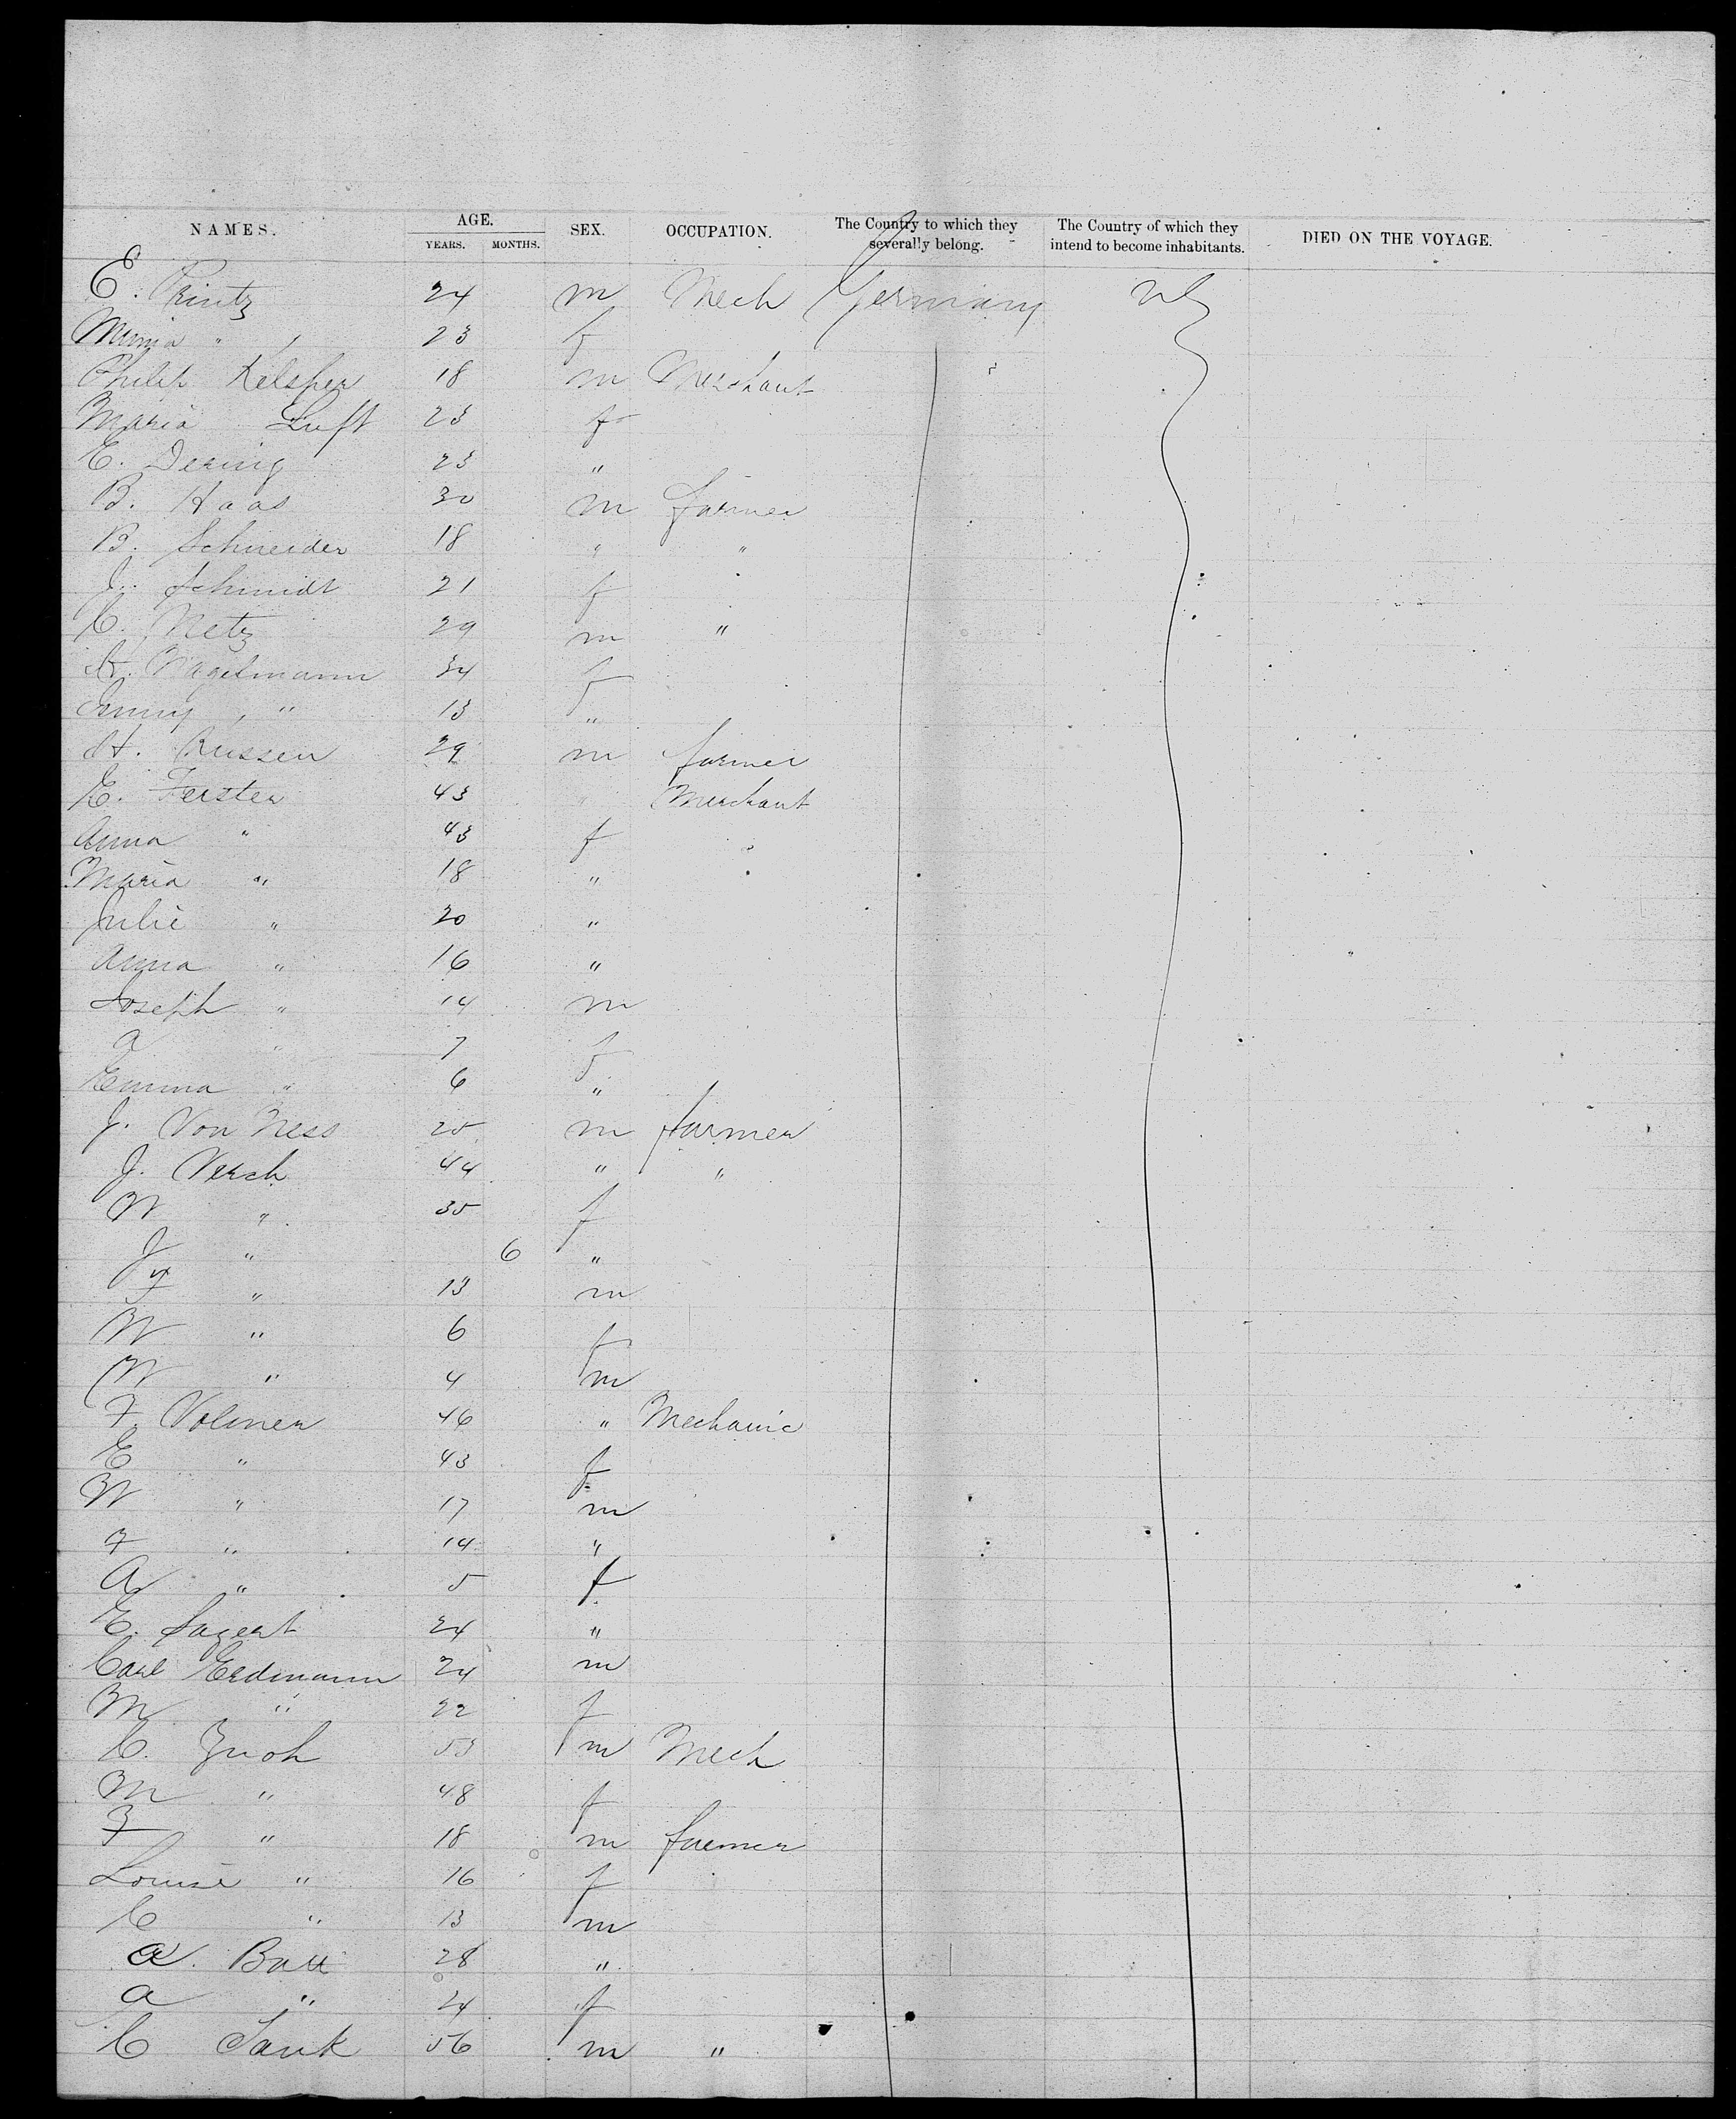 NAMES. AGE. YEARS. MONTHS. SEX. OCCUPATION. The Country to which they severally belong. The Country of which they intend to become inhabitants. DIED ON THE VOYAGE.
E. Printz 24 m Mech Germany US
Minnia " 23 f
Philip Kelsher 18 m Merchant
Maria Luft 23 f
E. Dering 23 "
B. Haas 30 m farmer
B. Schneider 18 " "
J. Schmidt 21 f
C. Metz 29 m "
34 f
" 13 "
H. Russen 29 m farmer
E. Ferster 43 " Merchant
Anna " 43 f
Maria " 18 "
Julie " 20 "
Anna " 16 "
Joseph " 14 m
a " 7 f
Emma " 6 "
J. Von Ness 25 m farmer
J. Verch 44 " "
W " 35 f
J " 6 "
" 13 m
W " 6 f
W " 4 m
F. Volmer 46 " Mechanic
E " 43 f
W " 17 m
F " 14 "
A " 5 f
E. Sagert 24 "
Carl Erdmann 24 m
M " 22 f
C. 53 m Mech
M " 48 f
F " 18 m farmer
Louise " 16 f
C " 13 m
a. 28 "
a " 24 f
C Tank 56 m "